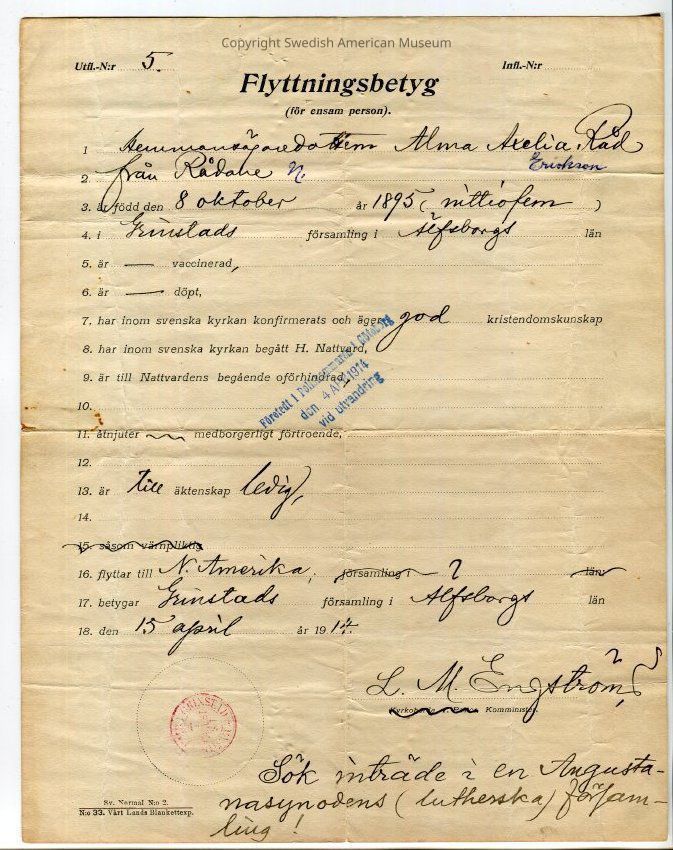 Copyright Swedish American Museum
Utfl.-N:r 5. Infl.-N:r
Flyttningsbetyg
(för ensam person).
1 Hemmansägaredottern Alma Axelia Råd
2. från Rådane N. Erickson
3. är född den 8 oktober år 1895 (nittiofem)
4. i Grinstads församling i Älfsborgs län
5. är — vaccinerad,
6. är — döpt,
7. har inom svenska kyrkan konfirmerats och äger god kristendomskunskap
8. har inom svenska kyrkan begått H. Nattvard,
9. är till Nattvardens begående oförhindrad
10.
Företedt i Poliskammaren i Göteborg
den 4 1914
vid utvandring
11. åtnjuter medborgerligt förtroende,
12.
13. är till äktenskap ledig,
14.
15. såsom värnpliktig
16. flyttar till N. Amerika, församling i ? län
17. betygar Grinstads församling i Älfsborgs län
18. den 15 april år 1914.
L. M. Engström,
Komminister.
Sök inträde i en Augusta-
nasynodens (lutherska) försam-
ling!
Sv. Normal N:o 2.
N:o 33. Vårt Lands Blankettexp.